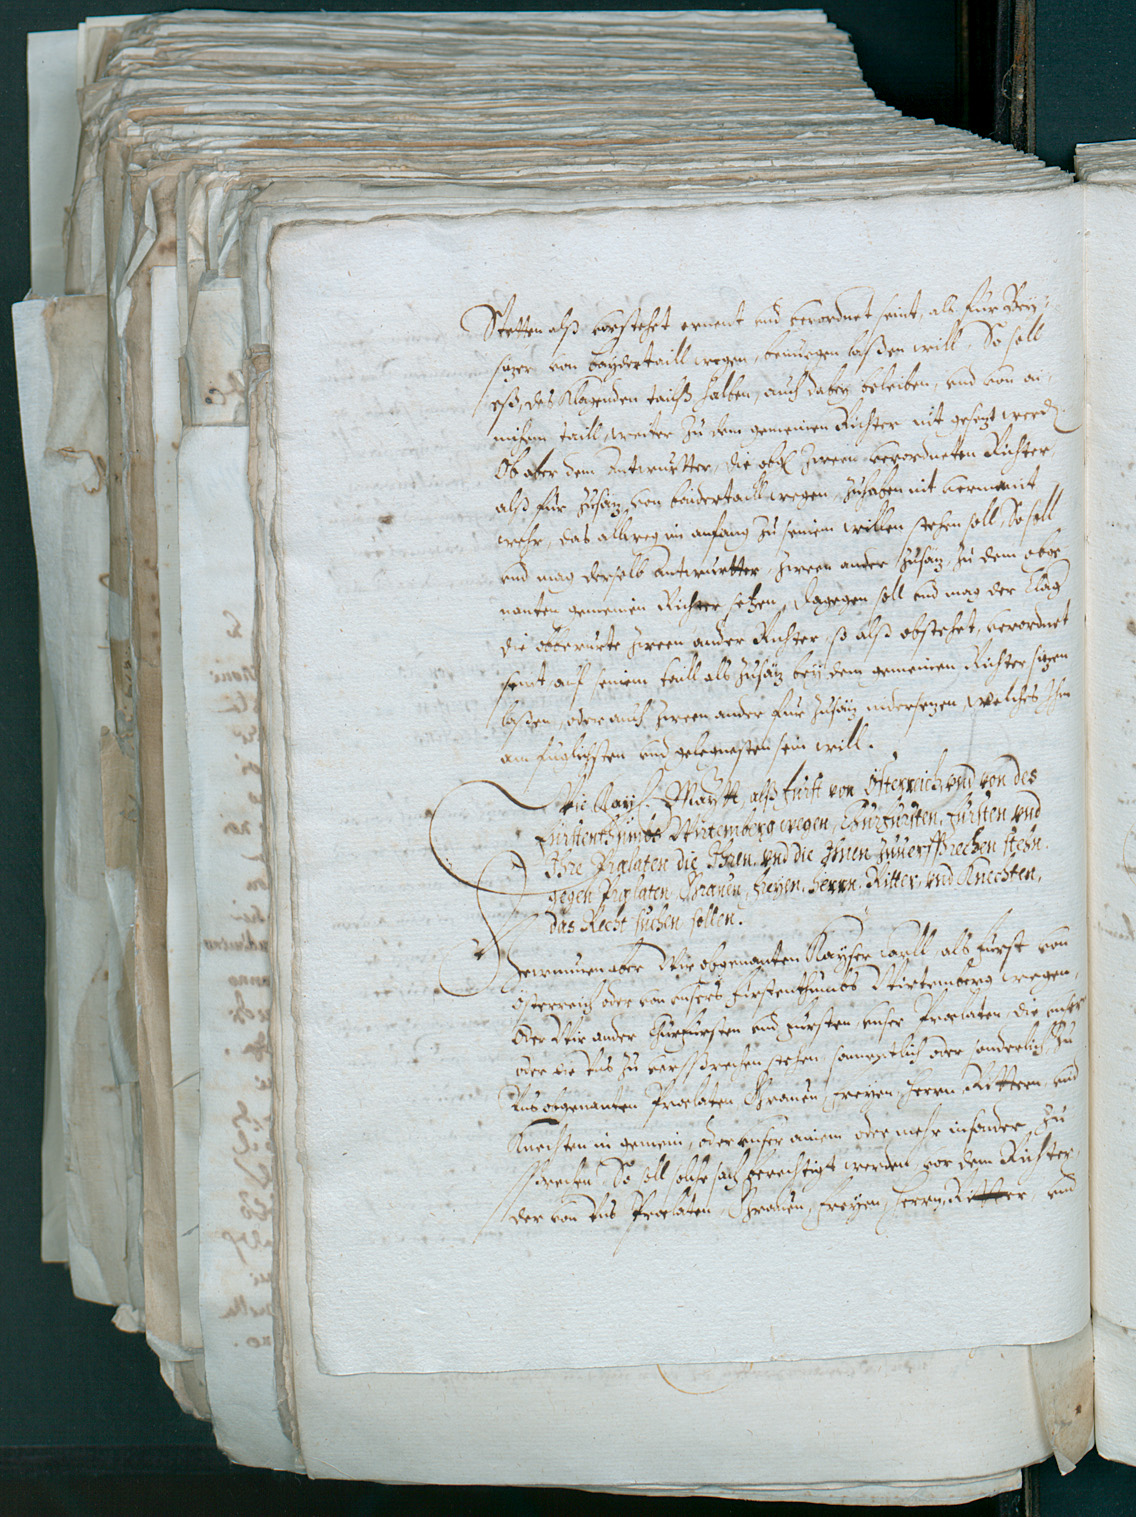 Stetten alß vorstehet ernent und verordnet seint, all für Bey-
sizer von baydertaill wegen, benuegen lassen will, So soll
eß, des Klagenden tailß halben, auch dabey beleiben, und von ai-
nichem taill, weiter zu dem gemeinen Richter nit gesezt werden.
Ob aber dem Antwurtter, die obgemelten zween verordneten Richter,
alß für Zusäz, von baidertaill wegen, zuhaben nit vermaint
wehr, das allweg im anfang zu seinem willen stehen soll, So soll
und mag derselb Antwurtter, zween ander Zusäz, zu dem obge-
nanten gemeinen Richter sezen, Dagegen soll und mag der Klager
die obberürte zween ander Richter, so alß obstehet, verordnet
seint auf seinem taill als Zusäz bey dem gemeinen Richter sizen
lassen, oder auch zween ander für Zusäz nidersezen, welches Ihm
am füglichsten und gelegnesten sein will.
Wie Kayß. Maytt. alß Fürst von Österreich, und von des
Fürstenthumbs Wirtemberg wegen, Churfürsten, Fürsten, und
Ihre Prælaten die Ihren, und die Ihnen zuversprechen stehn
gegen Prælaten, Graven, Freyen, Herrn, Ritter, und Knechten,
das Recht suchen sollen.
Gewunnen aber Wir obgenanten Kayser Carll als Fürst von
Österreich oder von unsers Fürstenthumbs Wirtemberg wegen,
Oder Wir ander Churfürsten und Fürsten, unser Prælaten, die unser
oder die Uns zu versprechen stehen, sammentlich oder sonderlich, zu
Uns obgenanten Prælaten, Graven, Freyen, Herrn, Rittern, und
Knechten in gemein, oder unser ainem oder mehr insonder, zu
sprechen, So soll solche sach gerechtigt werden, vor dem Richter,
der von Uns Prælaten, Graven, Freyen, Herrn, Ritter, und